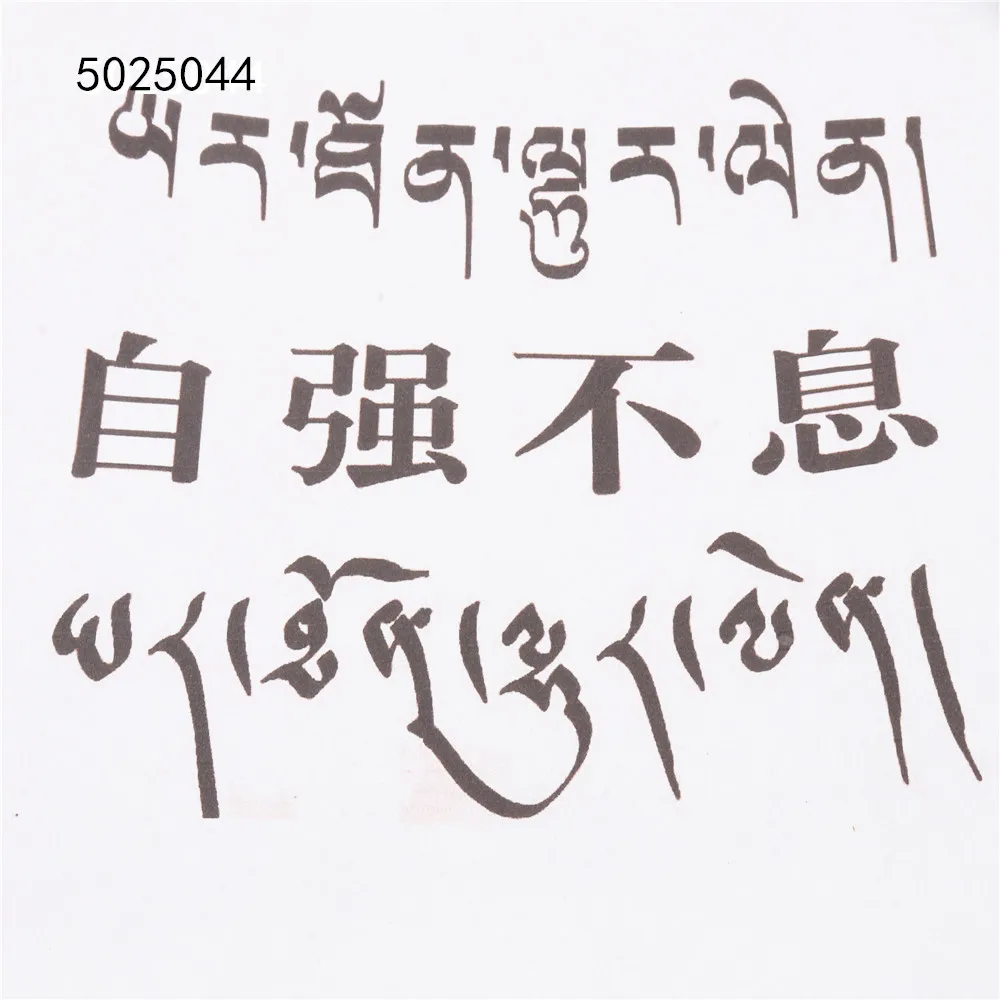 5025044
ཡར་ཐོན་ལྷུར་ལེན།
自强不息
ཡར་ཐོན་ལྷུར་ལེན།